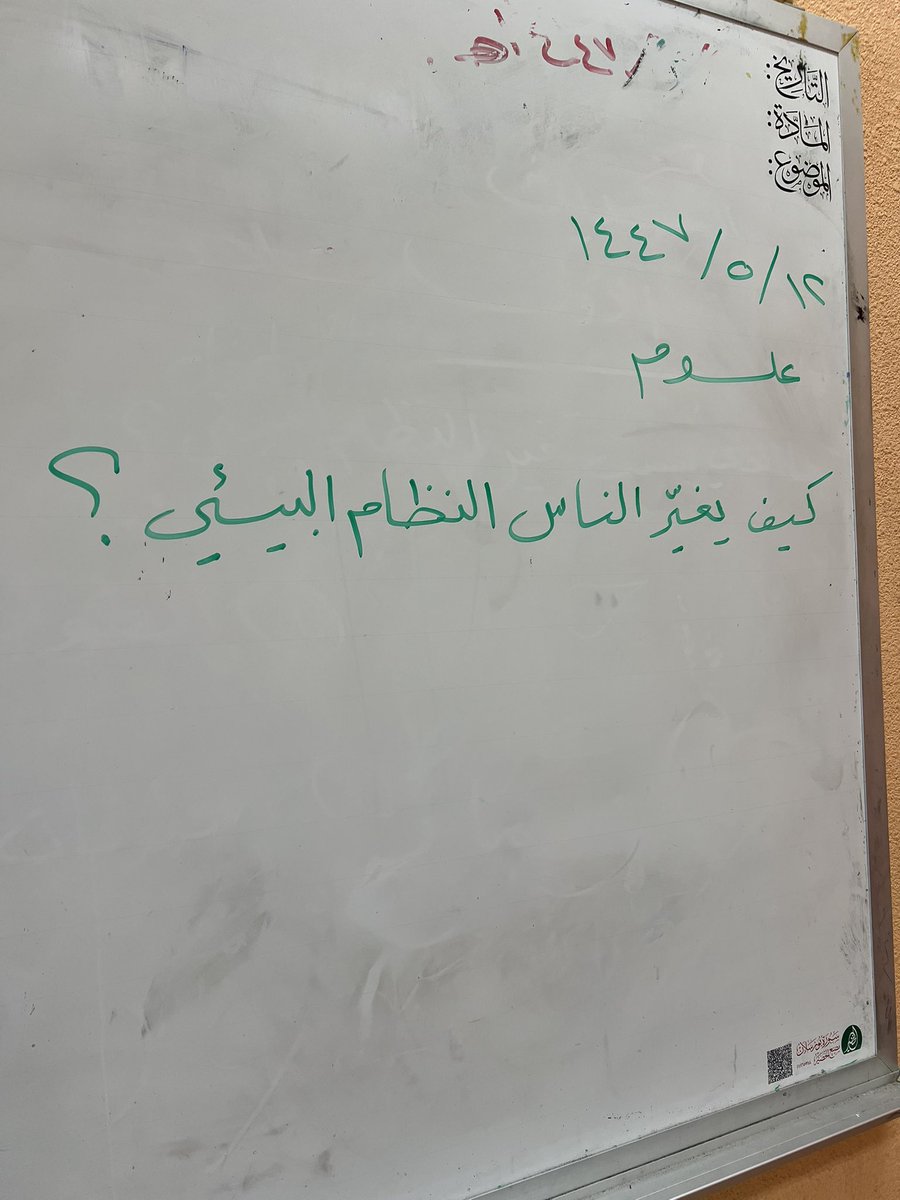 ١٤٤٧/
التَّارِيخ:
المَادَّة:
المَوْضُوع:
١٢/٥/١٤٤٧
علـوم
كيف يغيّر الناس النظام البيئي ؟